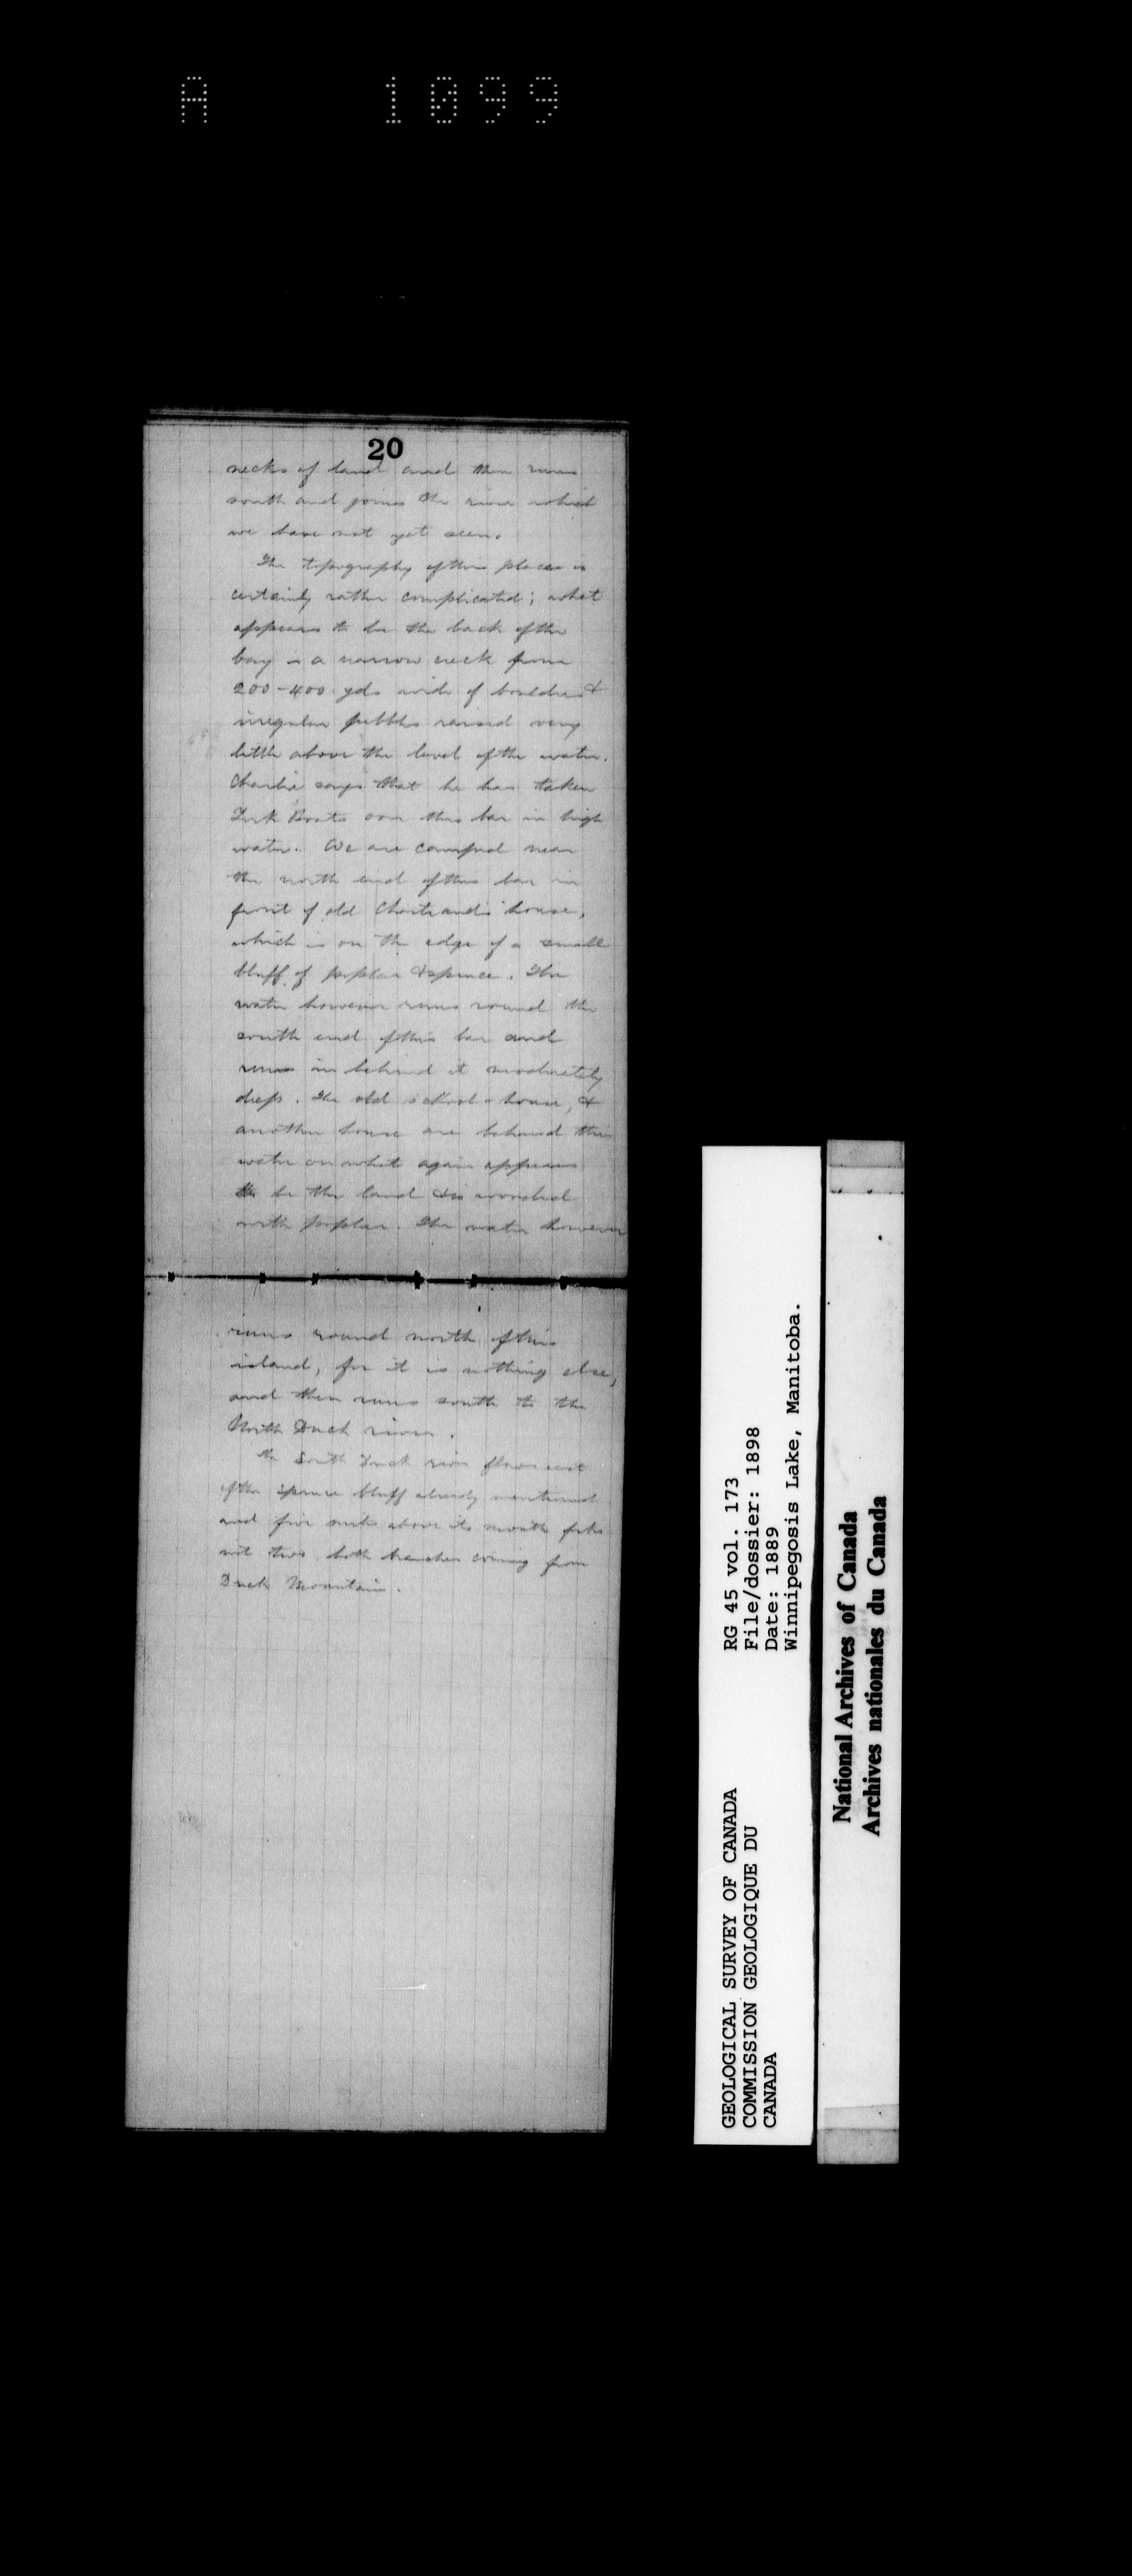 A 1099
20
necks of land and then runs
south and joins the river which
we have not yet seen.
The topography of this place is
certainly rather complicated; what
appears to be the back of the
bay is a narrow neck from
200-400 yds wide of boulders &
irregular pebbles raised very
little above the level of the water.
Charlie says that he has taken
York Boats over this bar in high
water. We are camped near
the north end of this bar in
front of old Chartrand's house,
which is on the edge of a small
bluff of poplar & spruce. The
water however runs round the
south end of this bar and
runs in behind it moderately
deep. The old school-house, &
another house are behind this
water on what again appears
to be the land & is wooded
with poplar. The water however
runs round north of this
island, for it is nothing else,
and then runs south to the
North Duck river.
The South Duck river flows east
of the spruce bluff already mentioned
and five miles above its mouth forks
into two, both branches coming from
Duck Mountain.
GEOLOGICAL SURVEY OF CANADA
COMMISSION GEOLOGIQUE DU
CANADA
RG 45 vol. 173
File/dossier: 1898
Date: 1889
Winnipegosis Lake, Manitoba.
National Archives of Canada
Archives nationales du Canada